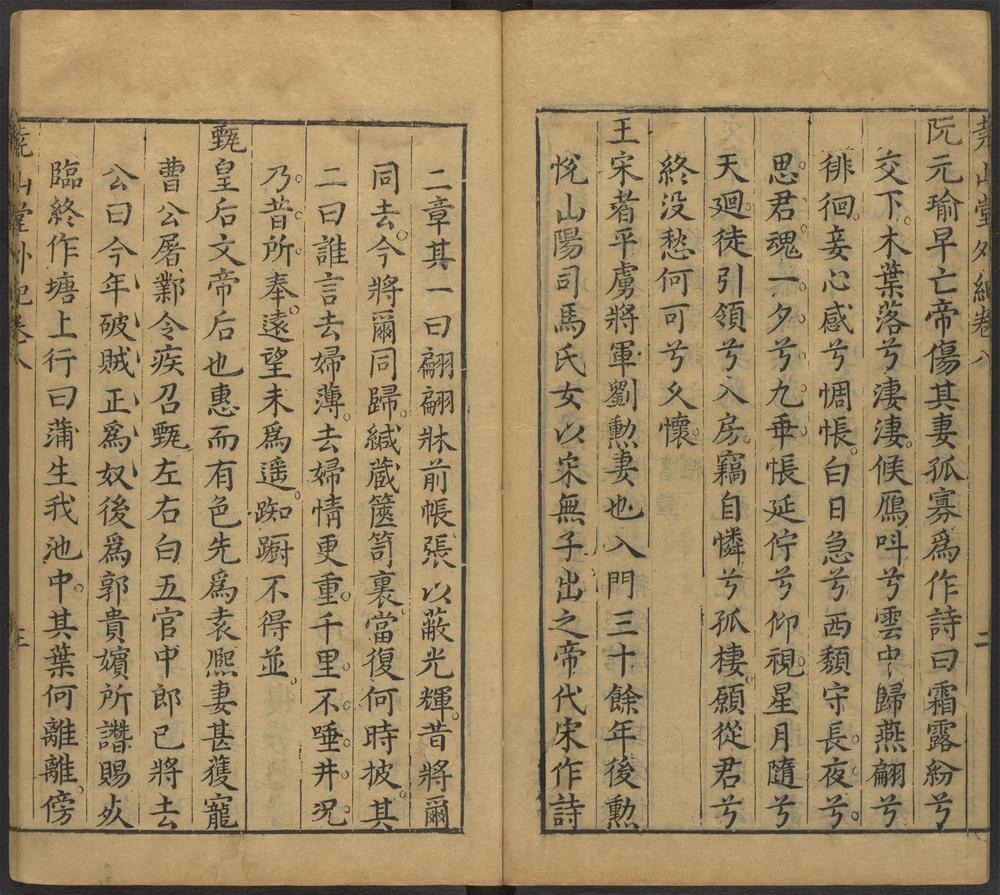 堯山堂外紀卷八 二
阮元瑜早亡帝傷其妻孤寡爲作詩曰霜露紛兮
交下木葉落兮淒淒候鴈呌兮雲中歸燕翩兮
徘徊妾心感兮惆悵白日急兮西頽守長夜兮
思君魂一夕兮九乖悵延佇兮仰視星月隨兮
天迴徒引領兮入房竊自憐兮孤棲願從君兮
終没愁何可兮久懷
王宋者平虜將軍劉勲妻也入門三十餘年後勲
悅山陽司馬氏女以宋無子出之帝代宋作詩
二章其一曰翩翩牀前帳張以蔽光輝昔將爾
同去今將爾同歸緘藏篋笥裏當復何時披其
二曰誰言去婦薄去婦情更重千里不唾井况
乃昔所奉遠望未爲遥踟蹰不得並
甄皇后文帝后也惠而有色先爲袁熈妻甚獲寵
曹公屠鄴令疾召甄左右白五官中郎已將去
公曰今年破賊正爲奴後爲郭貴嬪所譖賜死
臨終作塘上行曰蒲生我池中其葉何離離傍
堯山堂外紀卷八 三